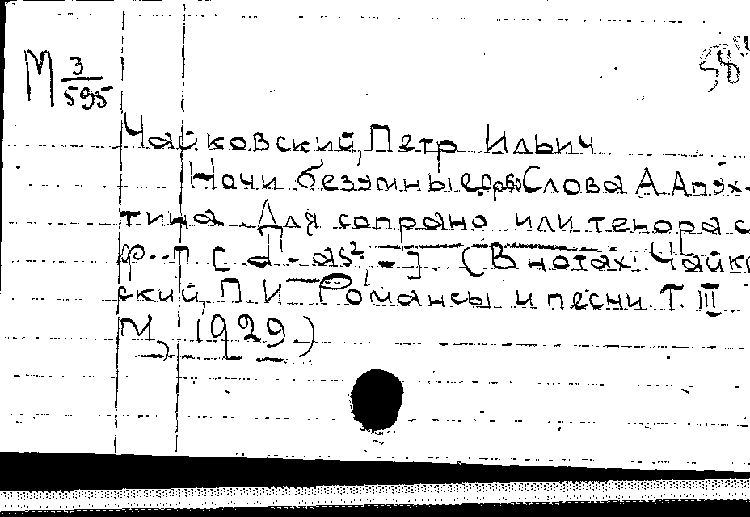 М 3/595
58
Чайковский, Петр Ильич
Ночи безумные Слова А. Апух-
тина. Для сопрано или тенора с
ф.-п. [d¹-as², -]. (В нотах: Чайков
ский, П. И. Романсы и песни. Т. III
М., 1929.)